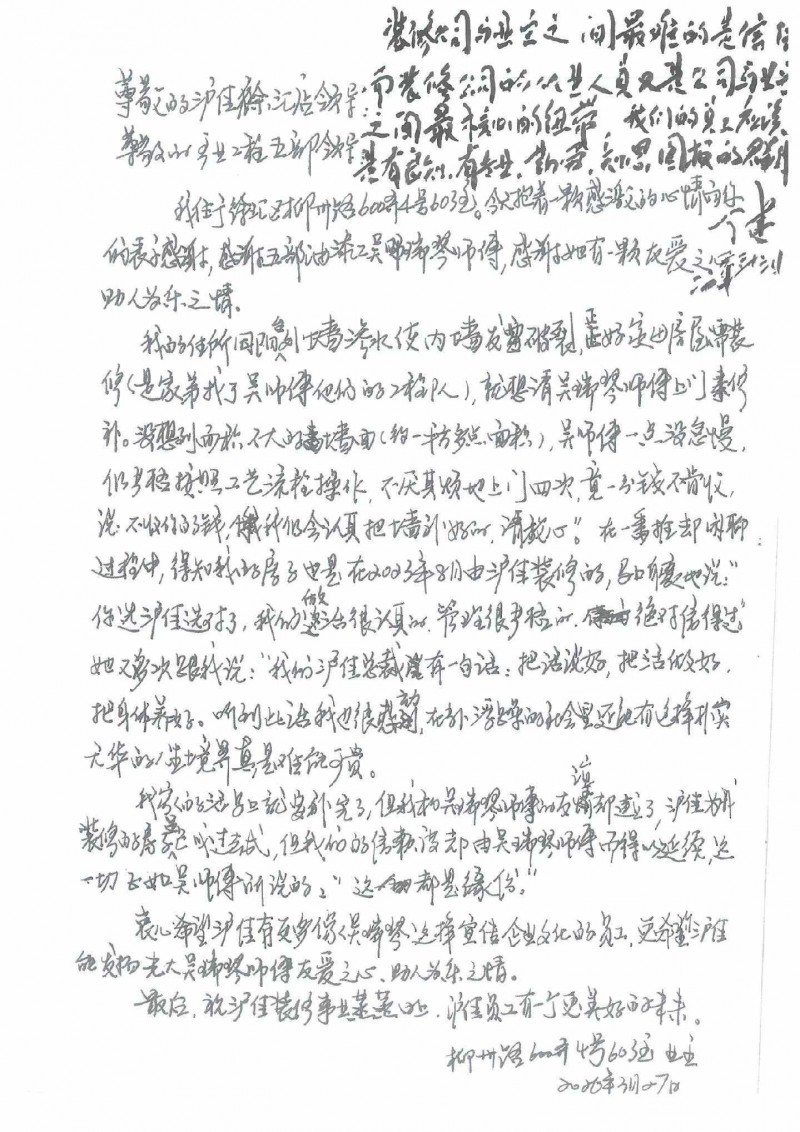 装修公司与业主之间最难的是信任
而装修公司的从业人员又是公司与业主
之间最核心的纽带 我们的员工应该
是有良知、有专业、勤劳、知恩图报的
尊敬的沪佳徐汇店领导：
尊敬的专业工程五部领导：
我住于徐汇区柳州路600弄4号603室。今天抱着一颗感激之的心情向你
们表示感谢，感谢五部油漆工吴瑞琴师傅，感谢她有一颗友爱之心
助人为乐之情。
我的住所因阳台外墙渗水使内墙发霉破裂，正好家里房屋需装
修（是家弟找了吴师傅他们的工程队），就想请吴瑞琴师傅上门来修
补。没想到面积不大的墙面（约一平方多点面积），吴师傅一点没怠慢，
仍严格按照工艺流程操作，不厌其烦地上门四次，竟一分钱不肯收，
说：不收你的钱，我们仍会认真把墙补好的，请放心”。在一番推却闲聊
过程中，得知我的房子也是在2023年8月由沪佳装修的，马上自豪地说：“
你选沪佳选对了，我们做后台很认真的，管理很严格的，绝对信得过”
她又多次跟我说：“我们沪佳总裁有一句话：把话说好，把活做好，
把身体养好。听到此话我也很感动，在外漂躁的社会里还能有这样朴实
无华的人生境界真是难能可贵。
我家的活马上就要补完了，但我和吴瑞琴师傅的友谊却建立了，沪佳为我
装修的房屋已成过去式，但我们的信赖没却由吴瑞琴师傅而得以延续，这
一切正如吴师傅所说的：“这一切都是缘份”。
衷心希望沪佳有更多像吴瑞琴这样宣传企业文化的员工，更希望沪佳
能发扬光大吴瑞琴师傅友爱之心、助人为乐之情。
最后，祝沪佳装修事业蒸蒸日上，沪佳员工有一个更美好的未来。
柳州路600弄4号603室 业主
2026年3月27日